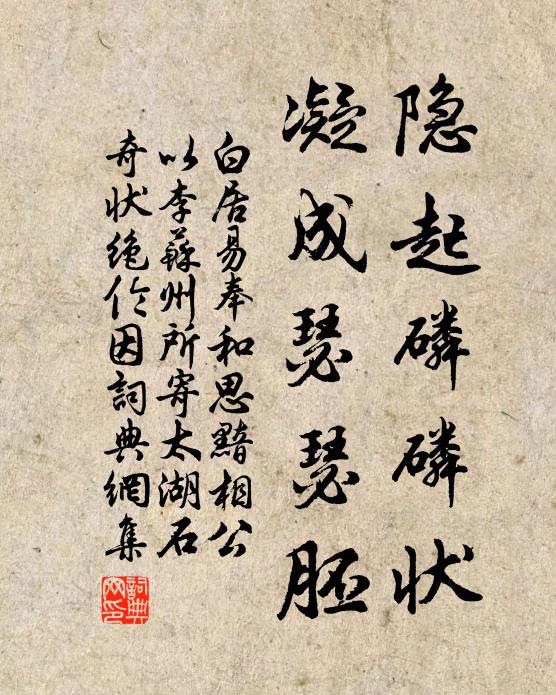 隐起磷磷状
凝成瑟瑟胚
白居易奉和思黯相公
以李蘇州所寄太湖石
奇状绝伦因詞典網集
詞典网印